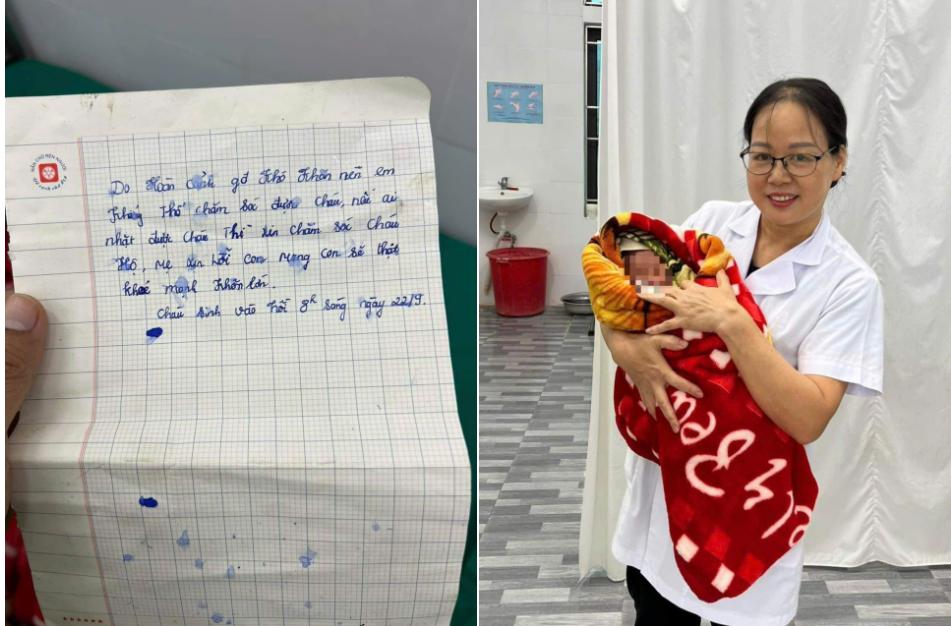 Do Hoàn cảnh gđ Khó Khăn nên em
Không Thể chăm sóc được cháu, nếu ai
nhặt được cháu Thì xin chăm sóc cháu
Hộ, mẹ xin lỗi con mong con sẽ thật
khoẻ mạnh khôn lớn.
Cháu sinh vào hồi 8h sáng ngày 22/9.